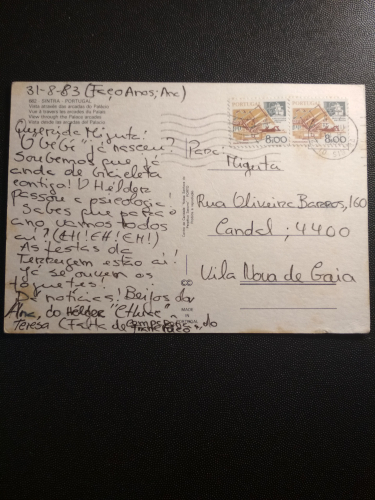 31-8-83 (Faço Anos, Ana)
SINTRA - PORTUGAL
Vista através das arcadas do Palácio
Vue à travers les arcades du Palais
View through the Palace arcades
Vista desde las arcadas del Palacio
Querida Miguta!
O "BéBé" já nasceu?
Soubemos que já
anda de bicicleta
contigo! O Hélder
passou a psicologia.
Sabes que para o
ano vamos todos
aí? (EH! EH! EH!)
As festas da
estão aí!
Já se ouvem os
foguetes!
Dá notícias! Beijos da
Ana, do Hélder
Teresa (Falta de
PORTUGAL
8.00
PORTUGAL
8.00
Para:
Miguta
Rua Oliveira Barros, 160
Candal; 4400
Vila Nova de Gaia
MADE
IN
PORTUGAL